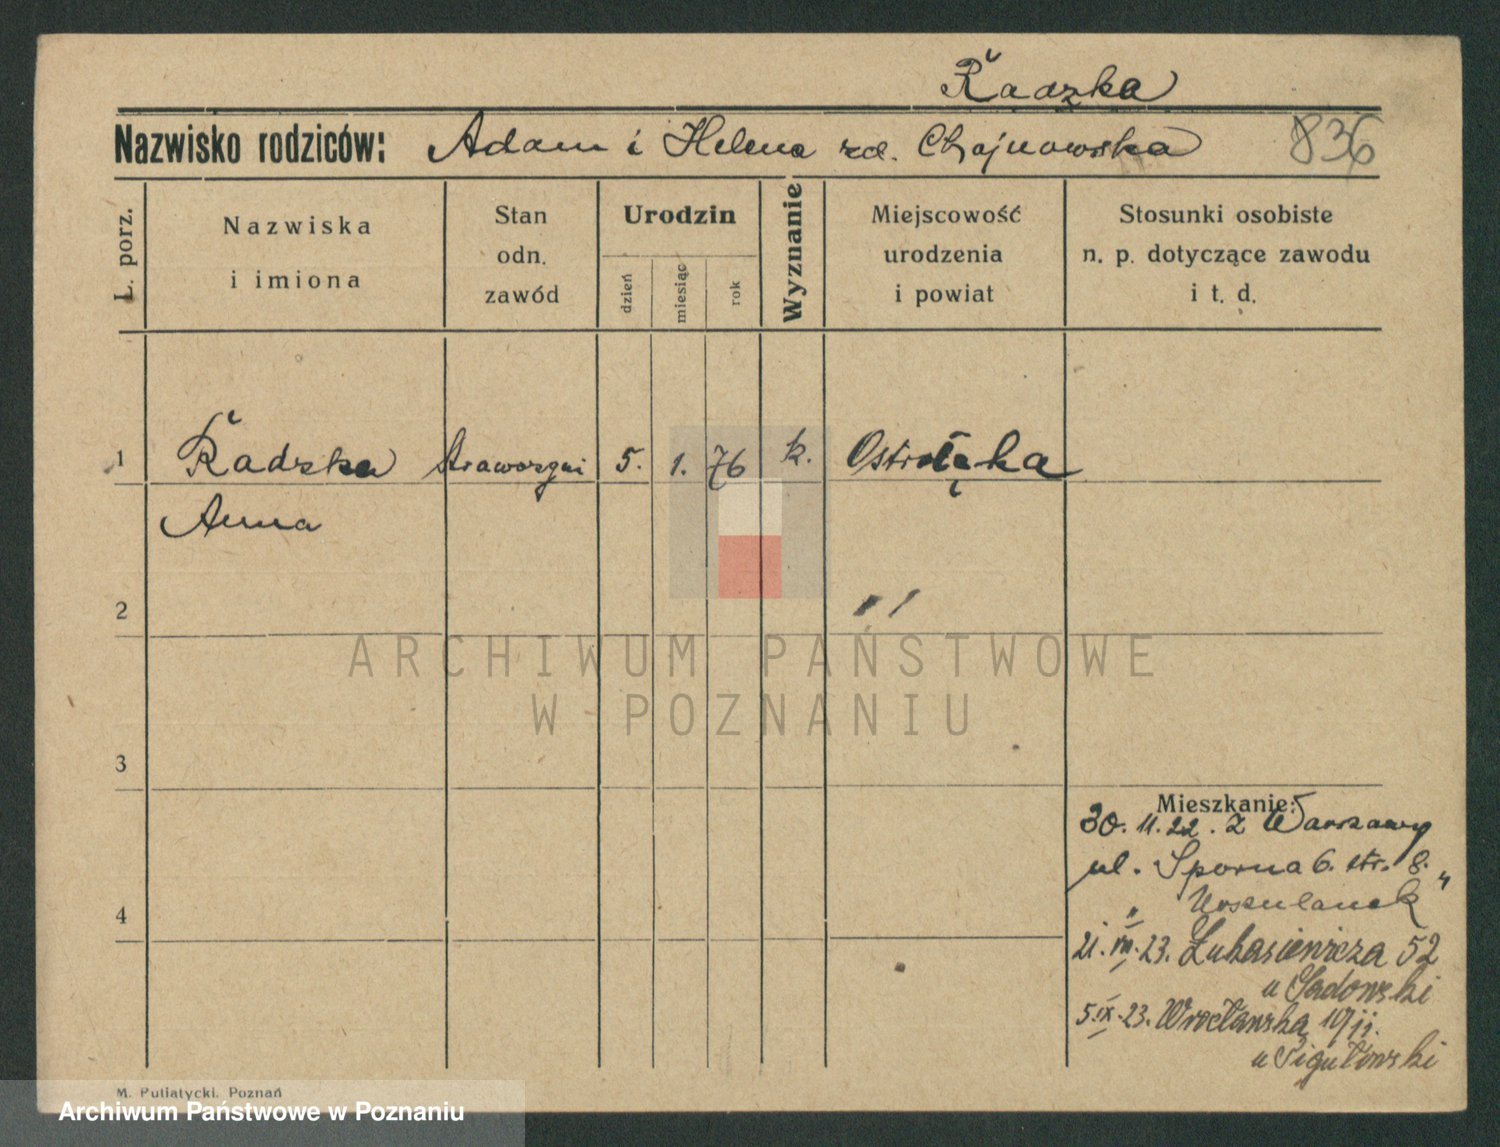 Radzka
Nazwisko rodziców: Adam i Helena zd. Chojnowska 836
L. porz.
Nazwiska
i imiona
Stan
odn.
zawód
Urodzin
dzień
miesiąc
rok
Wyznanie
Miejscowość
urodzenia
i powiat
Stosunki osobiste
n. p. dotyczące zawodu
i t. d.
1 Radzka 5. 1. 76 k. Ostrołęka
Anna
2
ARCHIWUM PAŃSTWOWE
W POZNANIU
3
Mieszkanie:
30. 11. 22. z Warszawy
ul. Sporna 6. str. 8.
" "
4
21. VII. 23. Łukasiewicza 52
u Sadowski
5. IX. 23. Wrocławska
u
M. Putiatycki, Poznań
Archiwum Państwowe w Poznaniu